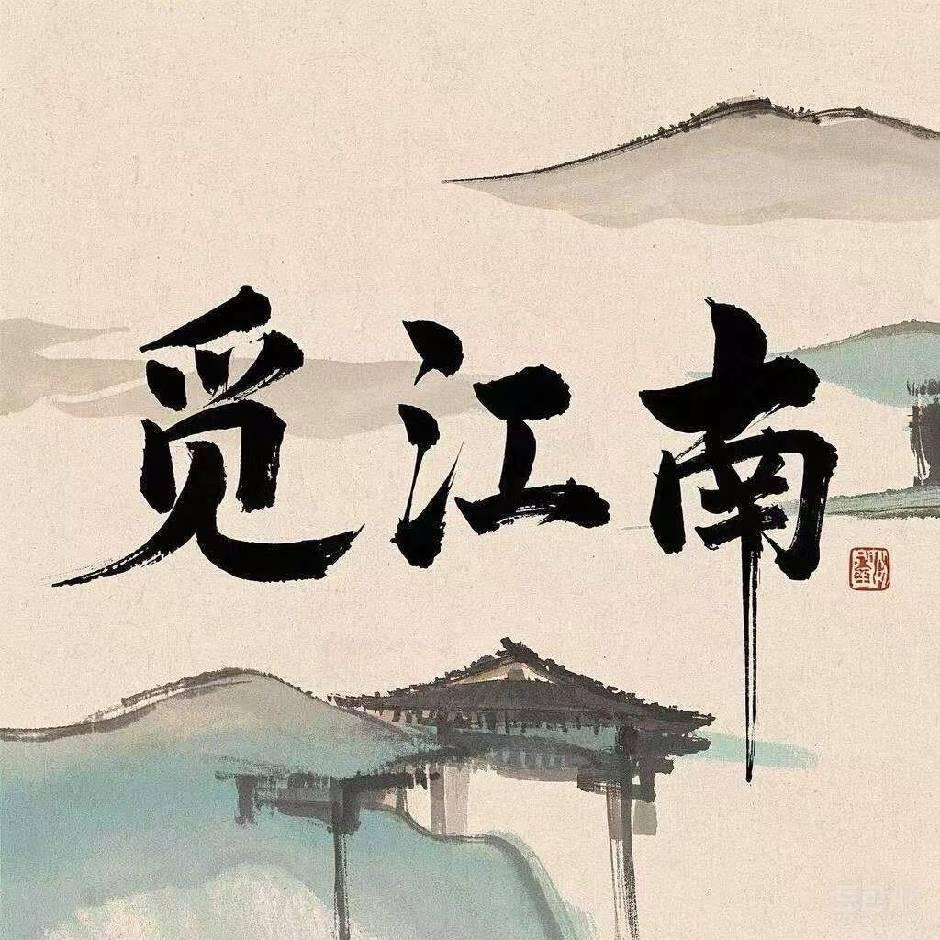 觅江南